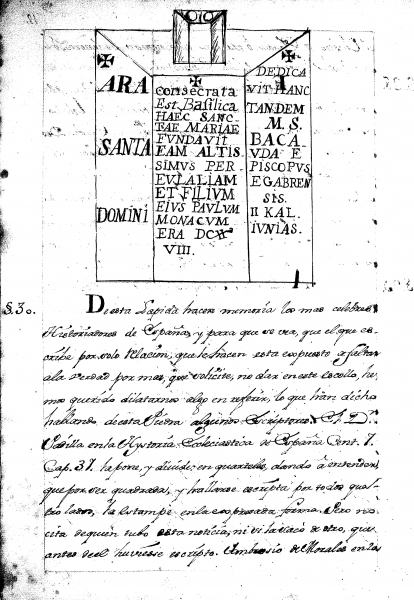 ARA
SANTA
DOMINI
consecrata
Est Basilica
HAEC SANC
TAE MARIAE
FUNDAVIT
EAM ALTIS
SIMUS PER
EULALIAM
ET FILIUM
EIUS PAULUM
MONACUM
ERA DCXC
VIII.
DEDICA
VIT HANC
TANDEM
M. S.
BACA
UDA E
PISCOPUS
EGABREN
SIS.
II KAL
IUNIAS.
§. 3o. De esta Lapida hacen memoria los mas celebres
Historiadores de España, y para que se vea, que el que es-
cribe por solo relacion, que le hacen esta expuesto a faltar
a la verdad por mas, que solicite, no dar en este escollo, he-
mos querido dilatarnos algo en referir, lo que han dicho
hablando de esta Piedra algunos Escriptores. F. D.
Padilla en la Hystoria Ecleciastica de España Cent. 7.
Cap. 37. la pone, y divide en quarteles, dando à entender,
que por ser quadrada, y hallarse escripta por todos qua-
tro lados, la estampé en la expresada forma. Pero no
cita de quien tubo esta noticia, ni si la sacò de otro, que
antes de el huviesse escripto. Ambrosio de Morales en la